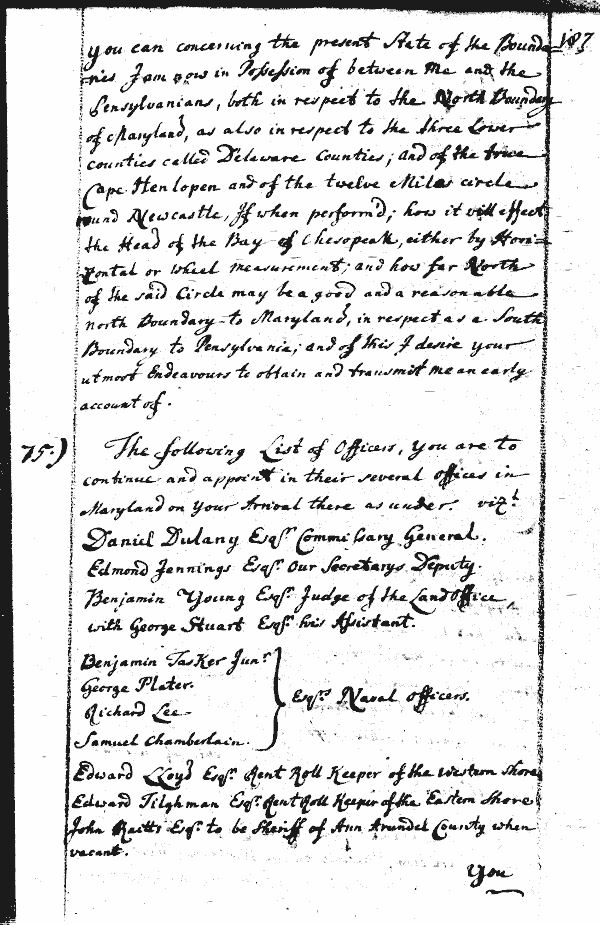 187
you can concerning the present State of the Bounda=
ries I am now in Possession of between me and the
Pensylvanians, both in respect to the North Boundary
of Maryland, as also in respect to the three Lower
counties called Delaware Counties; and of the true
Cape Henlopen and of the twelve Miles circle
round Newcastle, If when perform'd; how it will effect
the Head of the Bay of Chesopeak, either by Hori=
zontal or wheel measurement; and how far North
of the said Circle may be a good and a reasonable
north Boundary to Maryland, in respect as a South
Boundary to Pensylvania; and of this I desire your
utmost Endeavours to obtain and transmit me an early
account of.
75.) The following List of Officers, you are to
continue and appoint in their several offices in
Maryland on your Arrival there as under. vizt.
Daniel Dulany Esqr. Commissary General.
Edmond Jennings Esqr. Our Secretarys Deputy.
Benjamin Young Esqr. Judge of the Land Office,
with George Stuart Esqr. his Assistant.
Benjamin Tasker Junr.
George Plater.
Richard Lee
Samuel Chamberlain.
Esqrs. Naval Officers.
Edward Lloyd Esqr. Rent Roll Keeper of the Western Shore
Edward Tilghman Esqr. Rent Roll Keeper of the Eastern Shore
John Raitts Esqr. to be Sheriff of Ann Arundel County when
vacant.
You